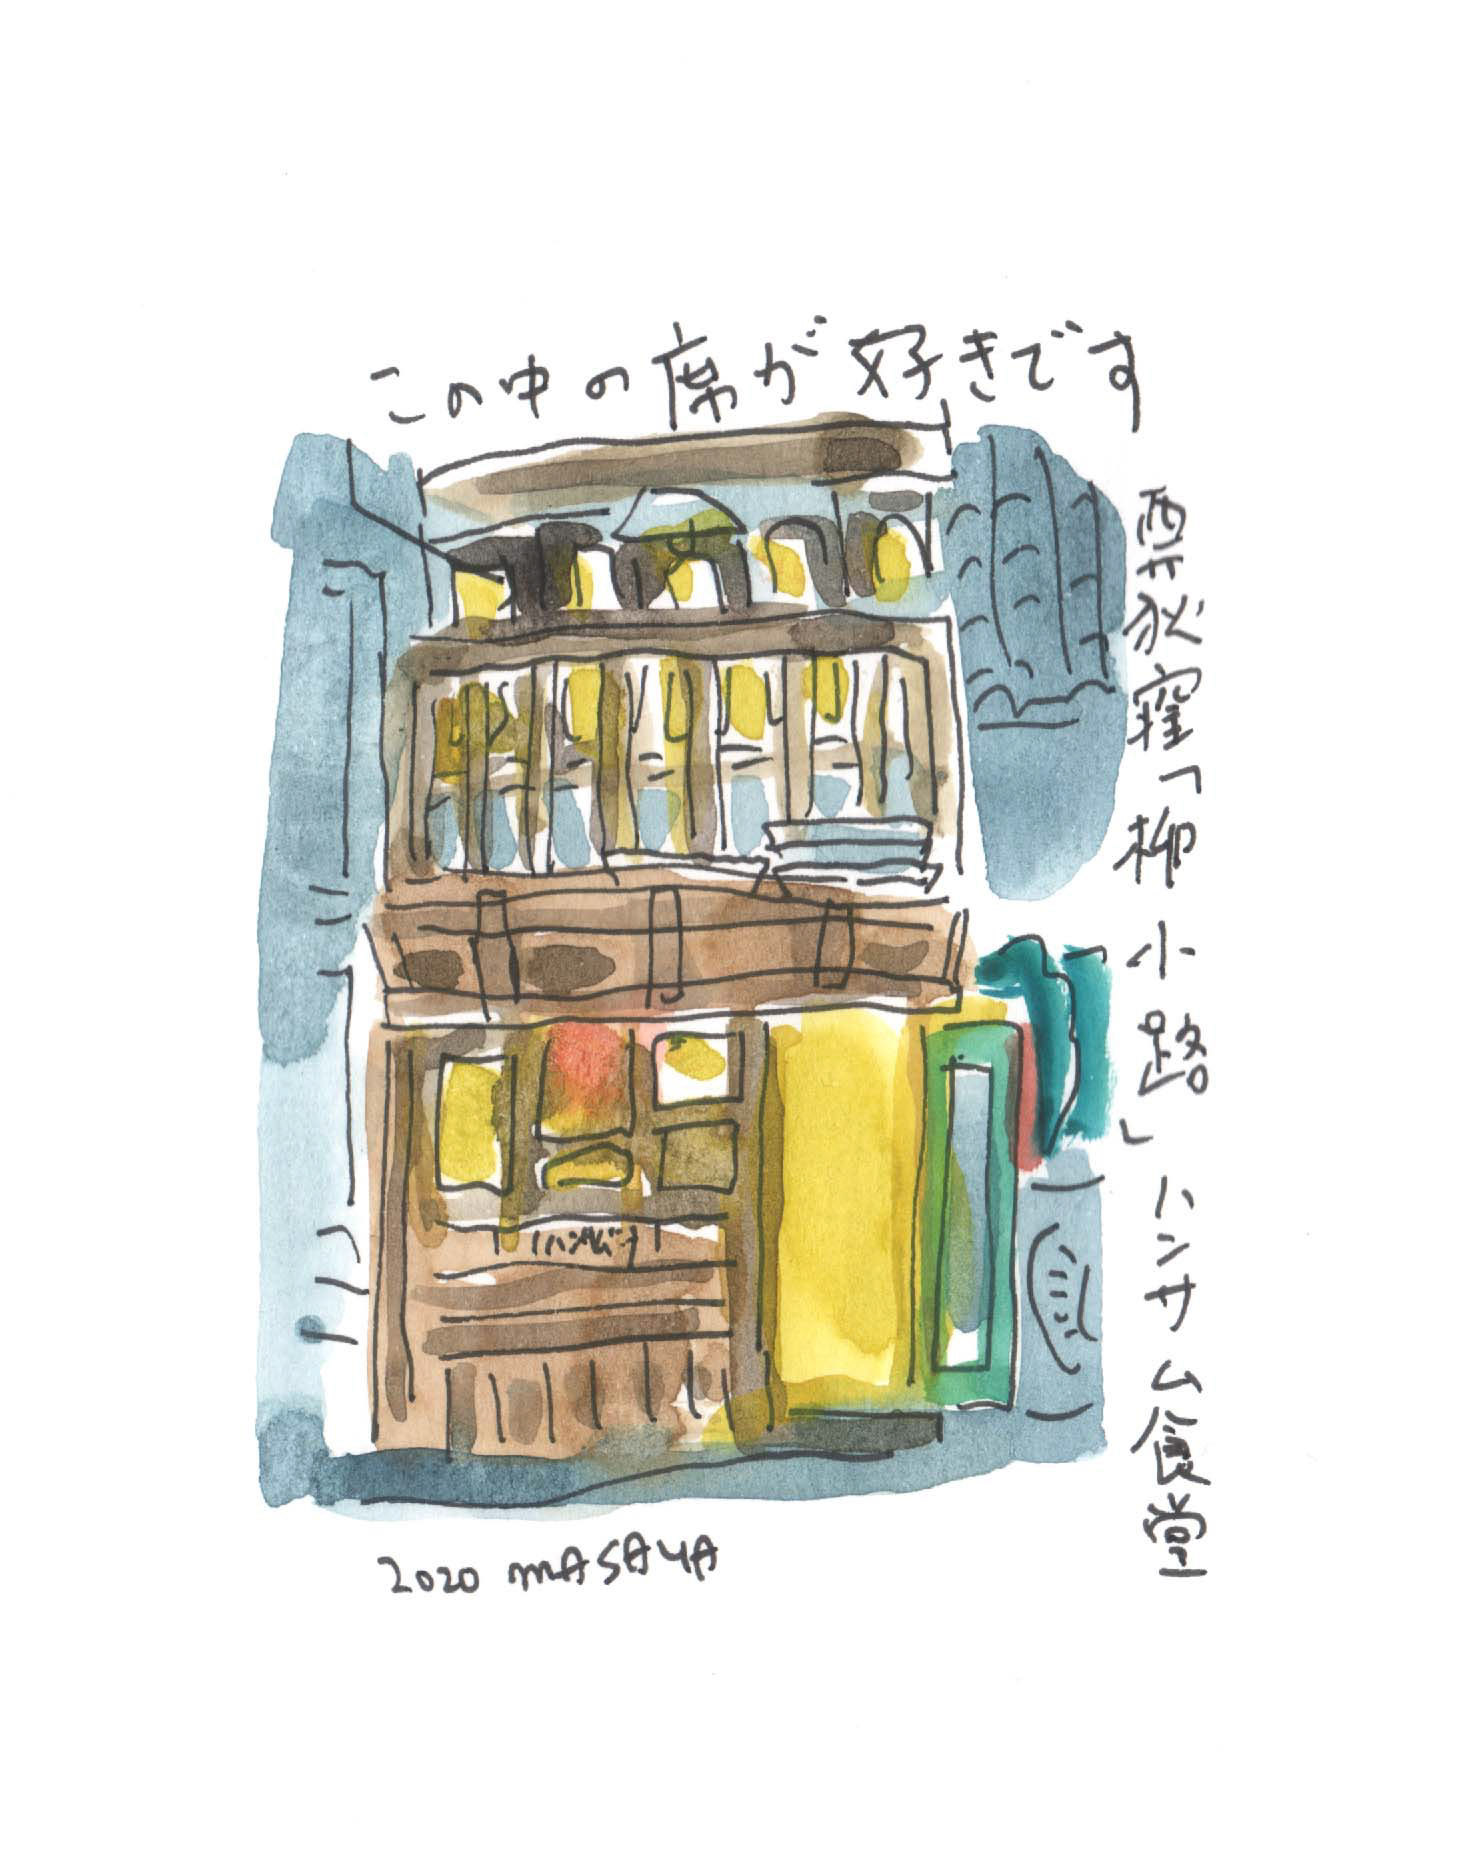 この中の席が好きです
西荻窪「柳小路」ハンサム食堂
2020 MASAYA